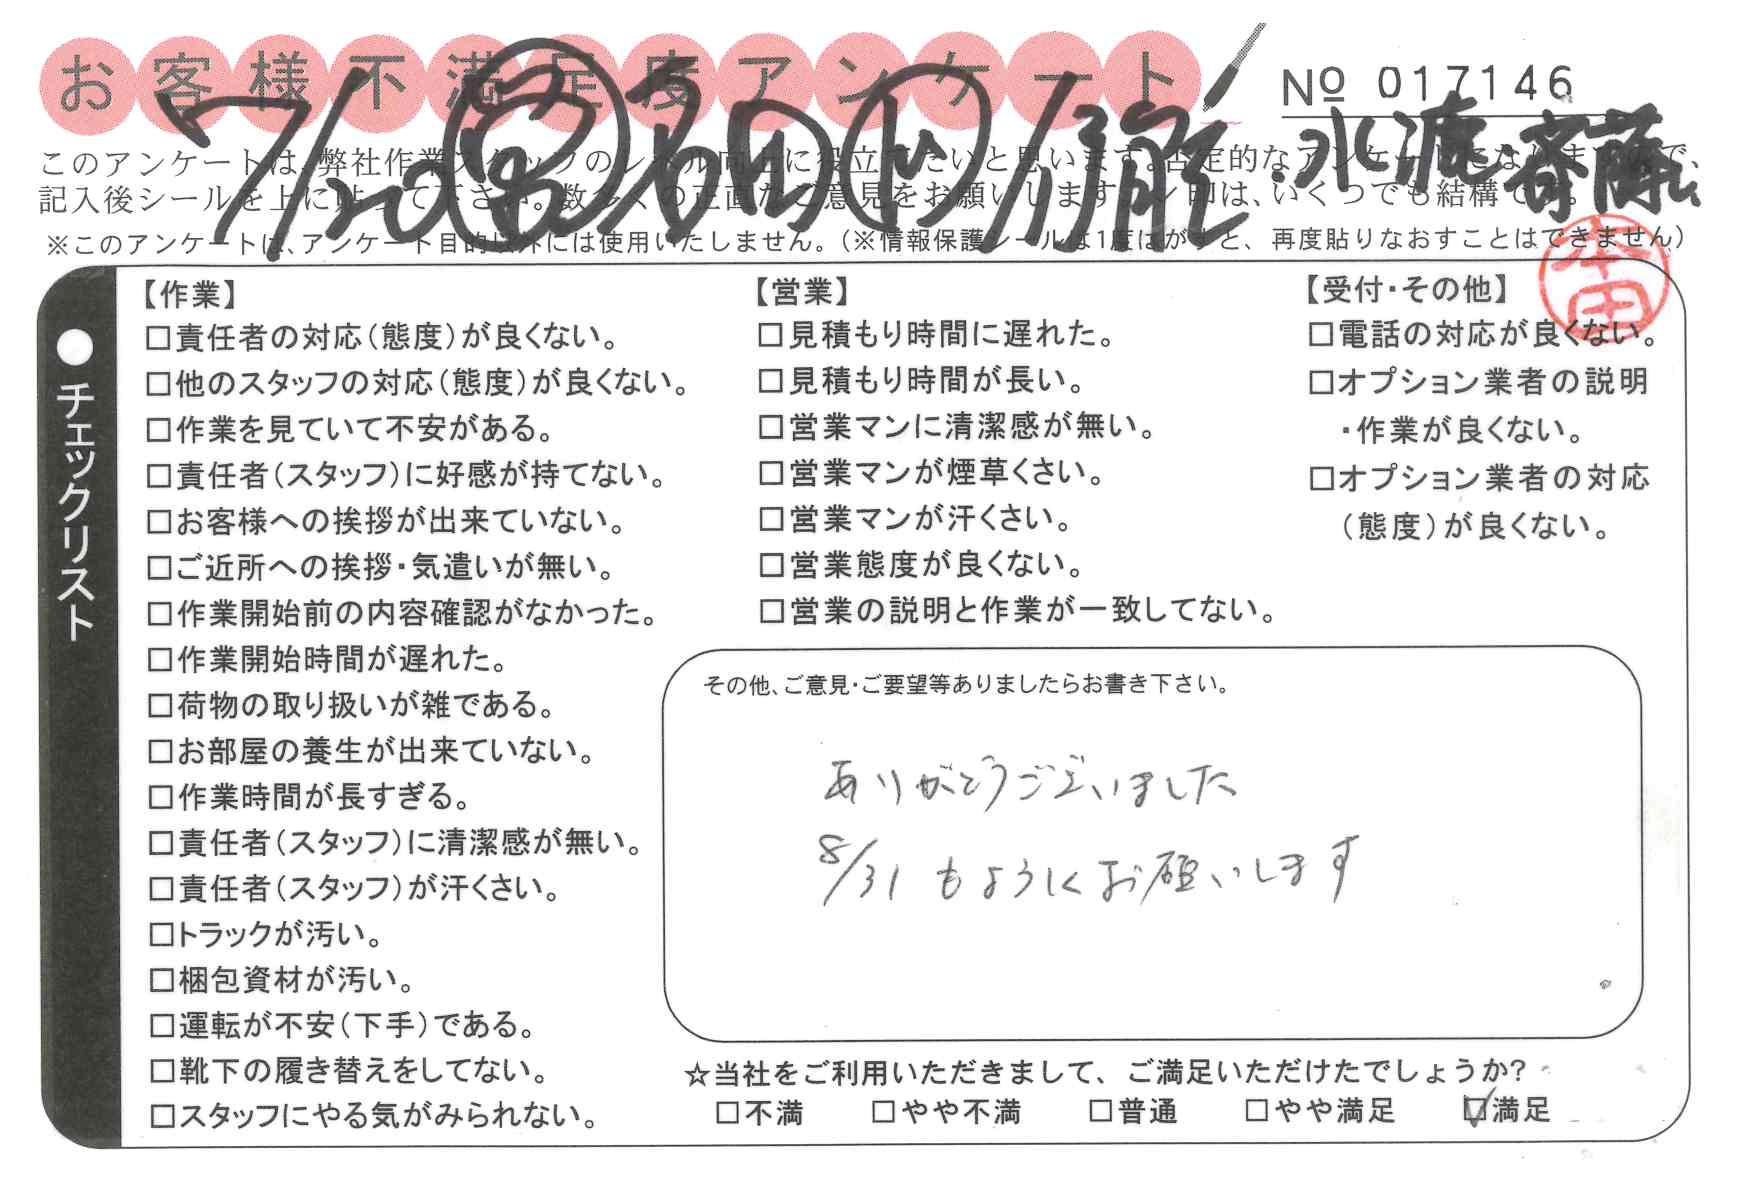 お客様不満足度アンケート
№ 017146
7/20
このアンケートは、弊社作業スタッフのレベル向上に役立てたいと思います。否定的なアンケートになりますので、
記入後シールを上に貼って下さい。数多くの正直なご意見をお願いします。ン印は、いくつでも結構です。
※このアンケートは、アンケート目的以外には使用いたしません。(※情報保護シールは1度はがすと、再度貼りなおすことはできません)
本田
●チェックリスト
【作業】
□責任者の対応(態度)が良くない。
□他のスタッフの対応(態度)が良くない。
□作業を見ていて不安がある。
□責任者(スタッフ)に好感が持てない。
□お客様への挨拶が出来ていない。
□ご近所への挨拶・気遣いが無い。
□作業開始前の内容確認がなかった。
□作業開始時間が遅れた。
□荷物の取り扱いが雑である。
□お部屋の養生が出来ていない。
□作業時間が長すぎる。
□責任者(スタッフ)に清潔感が無い。
□責任者(スタッフ)が汗くさい。
□トラックが汚い。
□梱包資材が汚い。
□運転が不安(下手)である。
□靴下の履き替えをしてない。
□スタッフにやる気がみられない。
【営業】
□見積もり時間に遅れた。
□見積もり時間が長い。
□営業マンに清潔感が無い。
□営業マンが煙草くさい。
□営業マンが汗くさい。
□営業態度が良くない。
□営業の説明と作業が一致してない。
【受付・その他】
□電話の対応が良くない。
□オプション業者の説明
・作業が良くない。
□オプション業者の対応
(態度)が良くない。
その他、ご意見・ご要望等ありましたらお書き下さい。
ありがとうございました
8/31 もよろしくお願いします
☆当社をご利用いただきまして、ご満足いただけたでしょうか?
□不満 □やや不満 □普通 □やや満足 ☑満足